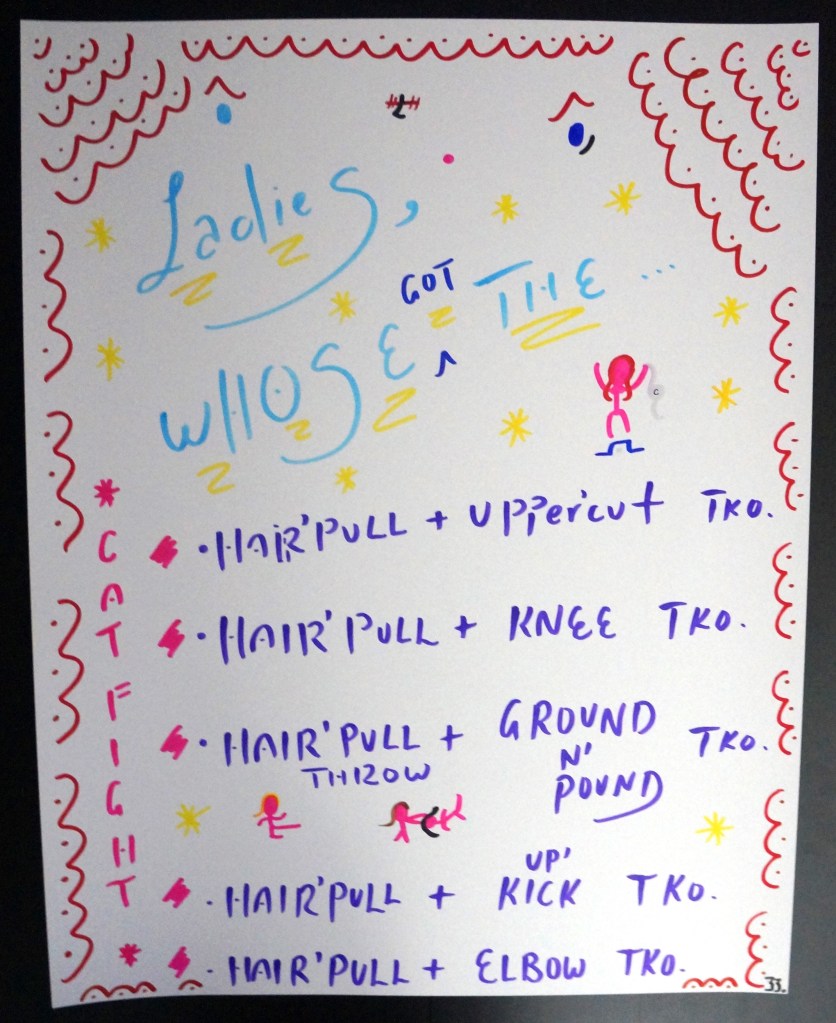 Ladies,
WHOSE GOT THE ...
* CAT FIGHT *
• HAIR'PULL + UPPER'CUT TKO.
• HAIR'PULL + KNEE TKO.
• HAIR'PULL THROW + GROUND N' POUND TKO.
• HAIR'PULL + UP' KICK TKO.
• HAIR'PULL + ELBOW TKO.